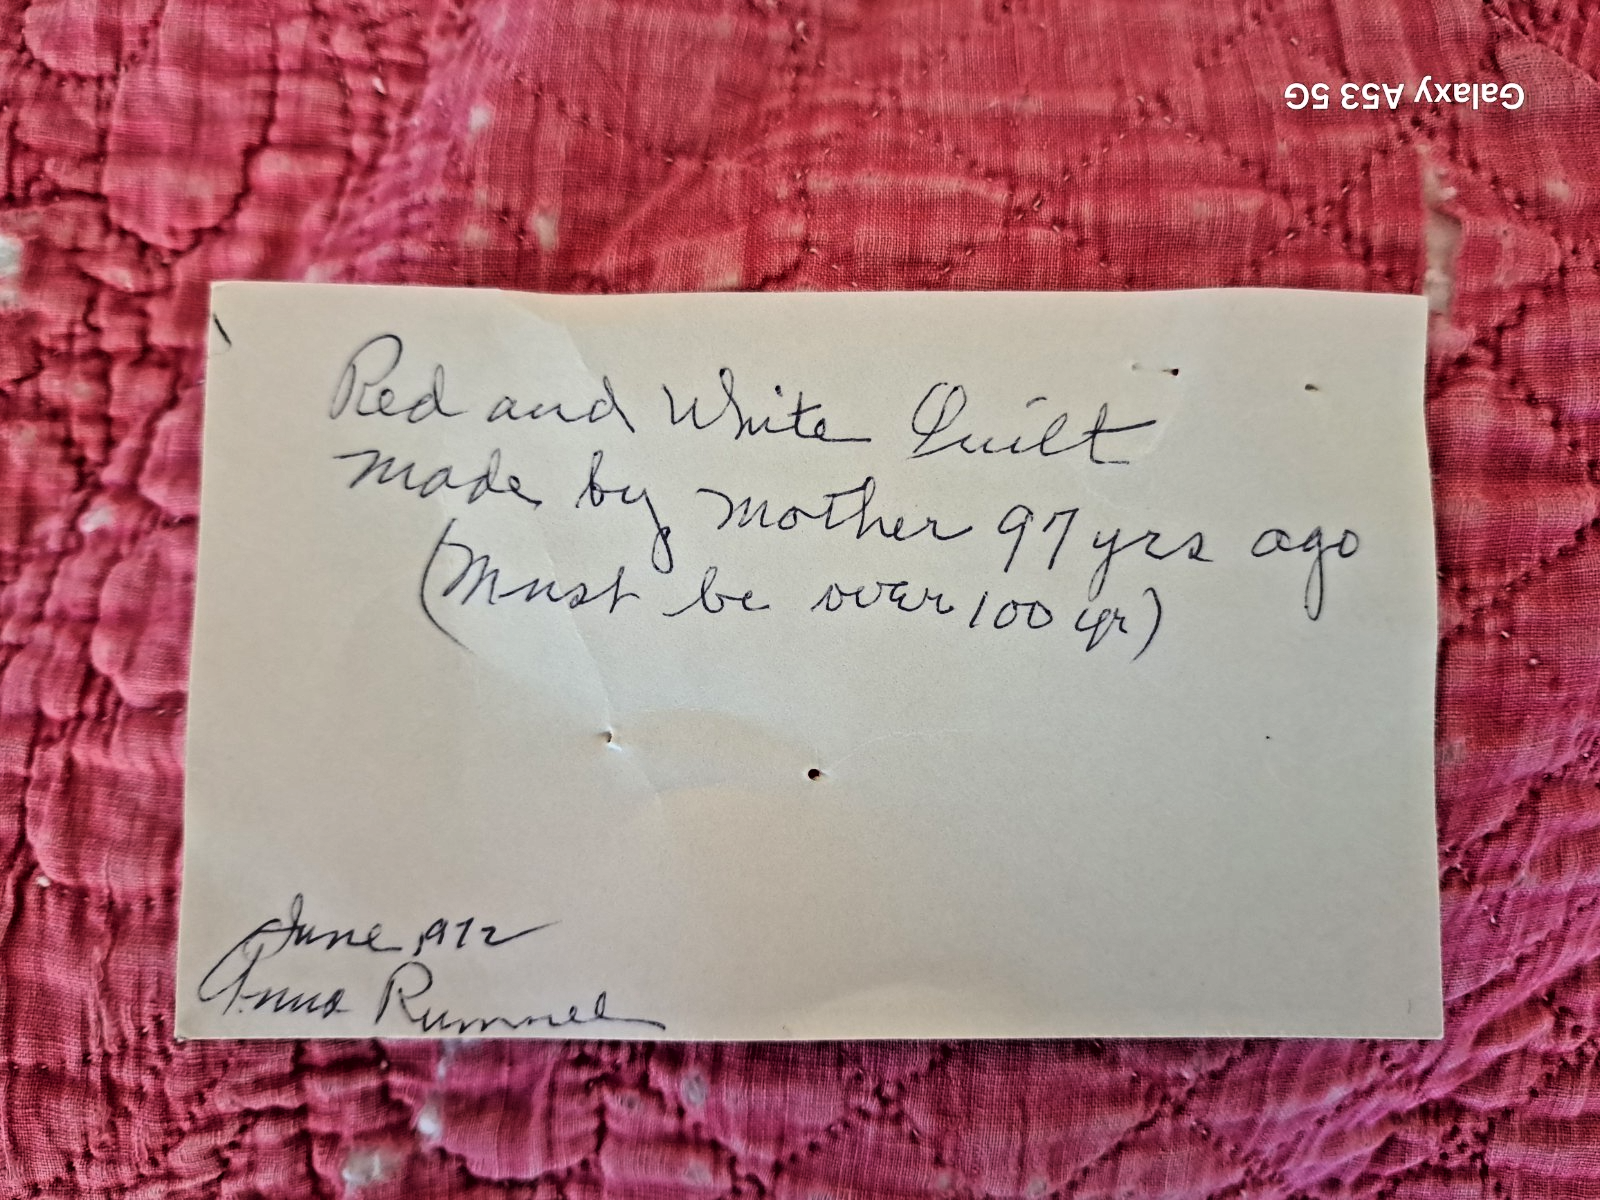 Galaxy A53 5G
Red and White Quilt
made by mother 97 yrs ago
(Must be over 100 yr)
June 1972
Anna Rummel